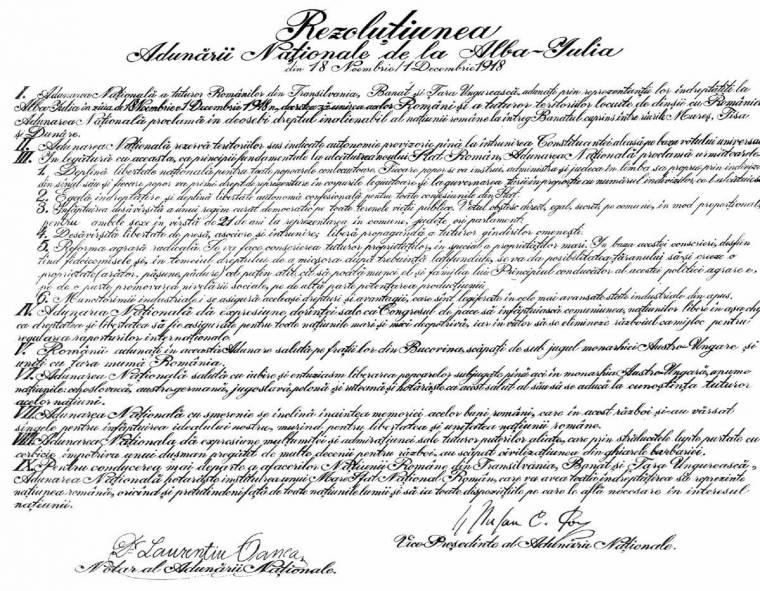 Rezoluțiunea
Adunării Naționale de la Alba-Iulia
din 18 Noembrie/1 Decembrie 1918
I. Adunarea Națională a tuturor Românilor din Transilvania, Banat și Țara Ungurească, adunați prin reprezentanții lor îndreptățiți la
Alba-Iulia în ziua de 18 Noembrie/1 Decembrie 1918, decretează unirea acelor Români și a tuturor teritoriilor locuite de dînșii cu România.
Adunarea Națională proclamă în deosebi dreptul inalienabil al națiunii române la întreg Banatul cuprins între râurile Mureș, Tisa
și Dunăre.
II. Adunarea Națională rezervă teritoriilor sus indicate autonomie provizorie pînă la întrunirea Constituantei aleasă pe baza votului universal
III. În legătură cu aceasta, ca principii fundamentale la alcătuirea noului Stat Român, Adunarea Națională proclamă următoarele
1. Deplină libertate națională pentru toate popoarele conlocuitoare. Fiecare popor se va instrui, administra și judeca în limba sa proprie prin indivizi
din sînul său și fiecare popor va primi drept de reprezentare în corpurile legiuitoare și la guvernarea țării în proporție cu numărul indivizilor ce-l alcătuiesc
2. Egală îndreptățire și deplină libertate autonomă confesională pentru toate confesiunile din Stat
3. Înfăptuirea desăvîrșită a unui regim curat democratic pe toate terenele vieții publice. Votul obștesc, direct, egal, secret, pe comune, în mod proporțional,
pentru ambele sexe în vîrstă de 21 de ani la reprezentarea în comune, județe ori parlament.
4. Desăvîrșită libertate de presă, asociere și întrunire; liberă propagandă a tuturor gîndurilor omenești.
5. Reforma agrară radicală. Se va face conscrierea tuturor proprietăților, în special a proprietăților mari. În baza acestei conscrieri, desființ
înd fideicomisele și, în temeiul dreptului de a micșora după trebuință latifundiile, se va da posibilitatea țăranului să-și creeze o
proprietate (arător, pășiune, pădure) cel puțin atît cît să poată munci el și familia lui. Principiul conducător al acestei politici agrare e,
pe de o parte promovarea nivelării sociale, pe de altă parte potențarea producțiunii.
6. Muncitorimii industriale i se asigură aceleași drepturi și avantagii, care sînt legiferate în cele mai avansate state industriale din apus.
IV. Adunarea Națională dă expresiune dorinței sale ca Congresul de pace să înfăptuiască comuniunea națiunilor libere în așa chip
ca dreptatea și libertatea să fie asigurate pentru toate națiunile mari și mici deopotrivă, iar în viitor să se elimineze războiul ca mijloc pentru
regularea raporturilor internaționale.
V. Românii adunați în această Adunare salută pe frații lor din Bucovina, scăpați de sub jugul monarhiei Austro-Ungare și
uniți cu țara mumă România.
VI. Adunarea Națională salută cu iubire și entuziasm liberarea popoarelor subjugate pînă aci în monarhia Austro-Ungară, anume
națiunile: cehoslovacă, austrogermană, jugoslavă, polonă și ruteană și hotărăște ca acest salut al său să se aducă la cunoștința tuturor
acelor națiuni.
VII. Adunarea Națională cu smerenie se închină înaintea memoriei acelor bravi români, care în acest război și-au vărsat
sîngele pentru înfăptuirea idealului nostru, murind pentru libertatea și unitatea națiunii române.
VIII. Adunarea Națională dă expresiune mulțumitei și admirațiunei sale tuturor puterilor aliate, care prin strălucitele lupte purtate cu
cerbicie împotriva unui dușman pregătit de multe decenii pentru război, au scăpat civilizațiunea din ghiarele barbariei.
IX. Pentru conducerea mai departe a afacerilor Națiunii Române din Transilvania, Banat și Țara Ungurească,
Adunarea Națională hotărăște instituirea unui Mare Sfat Național Român, care va avea toată îndreptățirea să reprezinte
națiunea română, oricînd și pretutindeni față de toate națiunile lumii și să ia toate dispozițiile pe care le află necesare în interesul
națiunii.
Dr Laurențiu Oanea
Notar al Adunării Naționale.
Vice Președinte al Adunării Naționale.